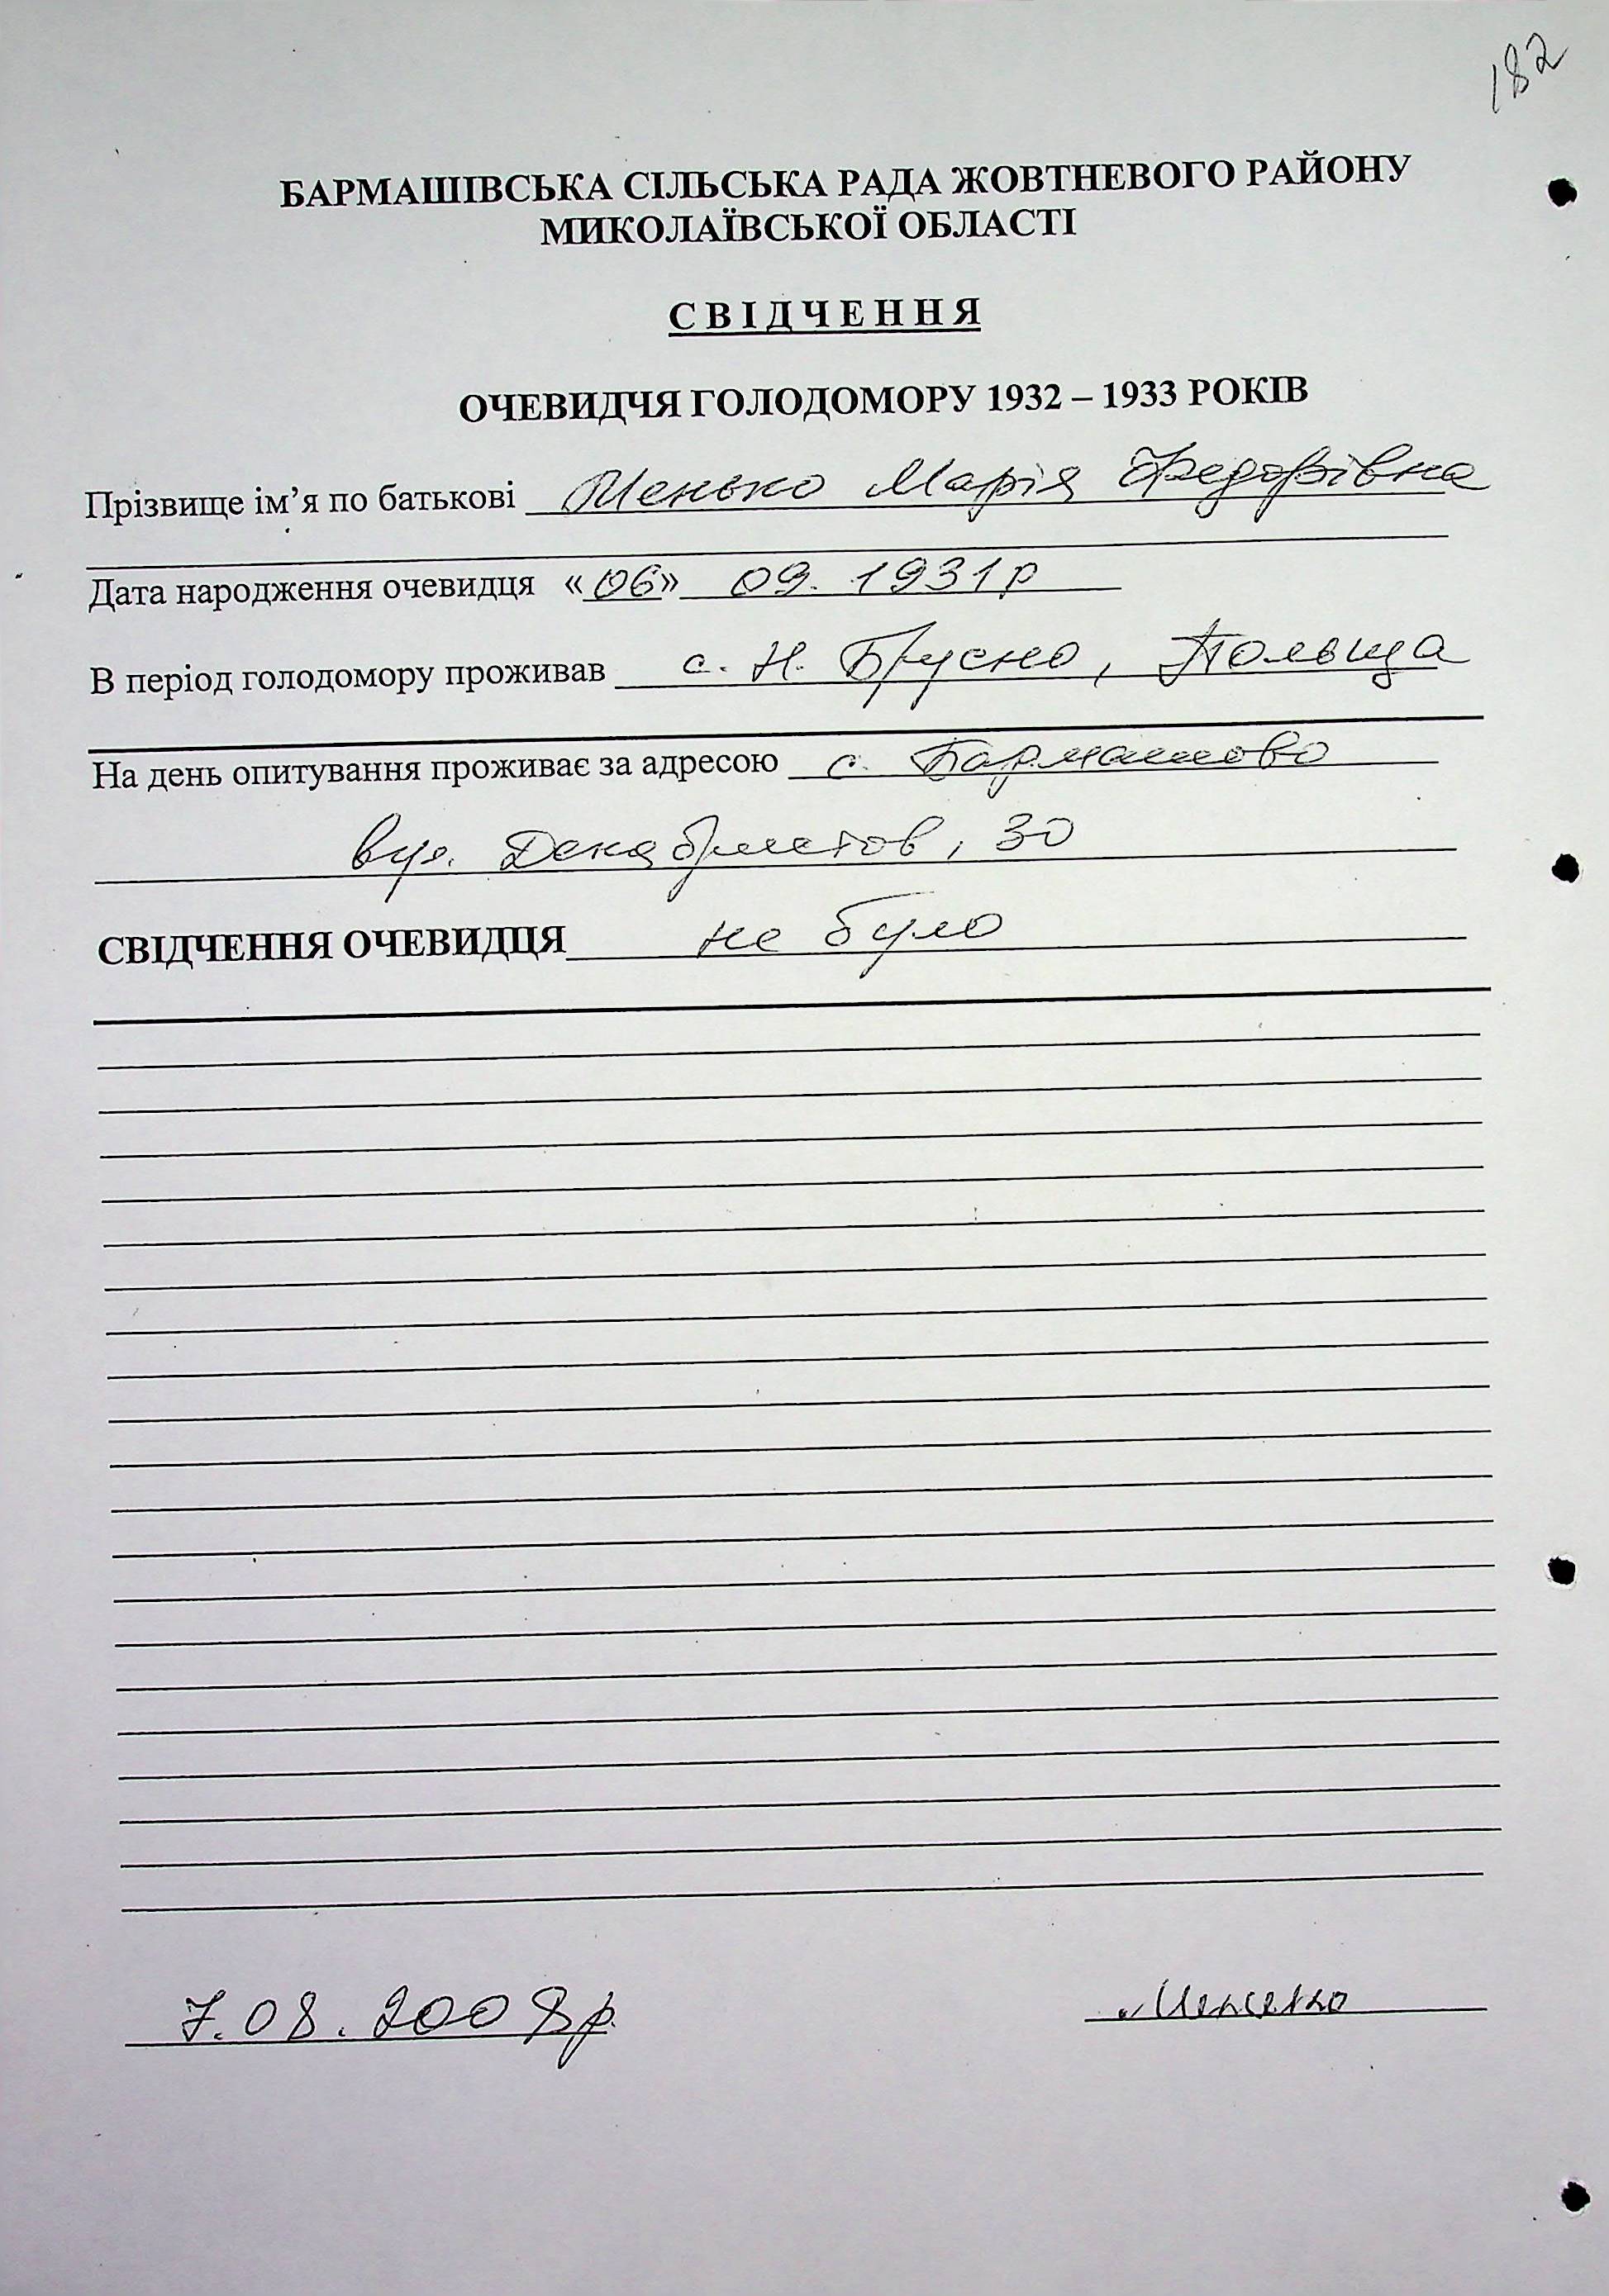 182
БАРМАШІВСЬКА СІЛЬСЬКА РАДА ЖОВТНЕВОГО РАЙОНУ
МИКОЛАЇВСЬКОЇ ОБЛАСТІ
СВІДЧЕННЯ
ОЧЕВИДЧЯ ГОЛОДОМОРУ 1932 – 1933 РОКІВ
Прізвище ім’я по батькові Менько Марія Федорівна
Дата народження очевидця «06» 09. 1931р
В період голодомору проживав с. Н. Брусно, Польща
На день опитування проживає за адресою с. Бармашово
вул. Декабристов, 30
СВІДЧЕННЯ ОЧЕВИДЦЯ не було
7.08.2008р.